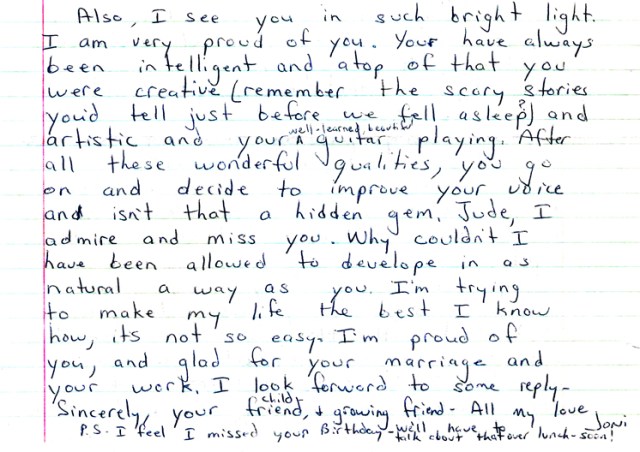 Also, I see you in such bright light.
I am very proud of you. Your have always
been intelligent and atop of that you
were creative (remember the scary stories
you'd tell just before we fell asleep?) and
well-learned, beautiful
artistic and your ^ guitar playing. After
all these wonderful qualities, you go
on and decide to improve your voice
and isn't that a hidden gem. Jude, I
admire and miss you. Why couldn't I
have been allowed to develope in as
natural a way as you. I'm trying
to make my life the best I know
how, its not so easy. I'm proud of
you, and glad for your marriage and
your work. I look forward to some reply-
child
Sincerely, your friend, & growing friend - All my love
Joni
P.S. I feel I missed your Birthday - we'll have to
talk about that over lunch - soon!